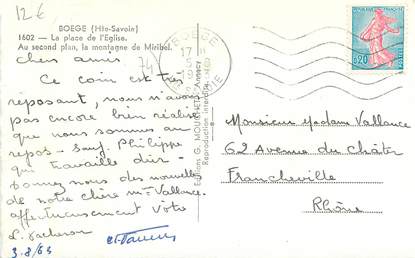 12€
BOEGE (Hte-Savoie)
1602 — La place de l'Eglise.
Au second plan, la montagne de Miribel.
74
chers amis
Ce coin est très
reposant, nous n'avons
pas encore bien réalisé
que nous sommes au
repos - sauf Philippe
qui travaille dur.
donnez nous des nouvelles
de notre chère mme Vallance.
affectueusement Votre
3-8/63
Editions G. MOUCHET - Annecy
Reproduction interdite
BOEGE
17 H
5-8
HTE SAVOIE
REPUBLIQUE FRANÇAISE
0,20
POSTES
Monsieur Madame Vallance
62 Avenue du Châter
Francheville
Rhône